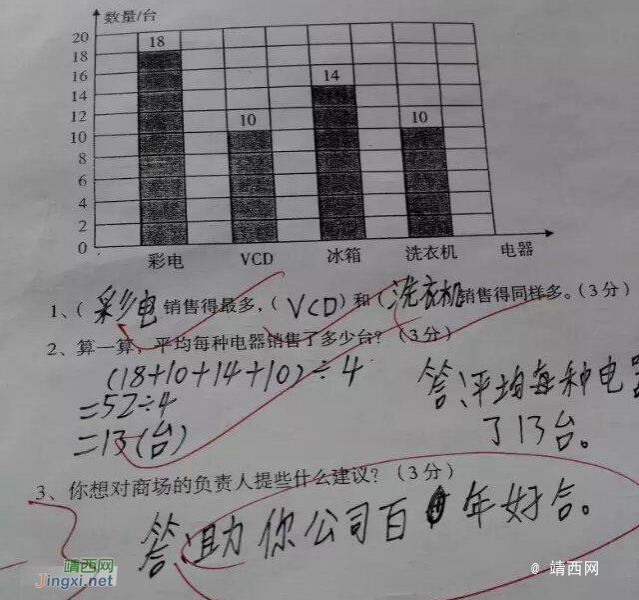 数量/台
20
18
18
16
14
14
12
10
10
10
8
6
4
2
0
彩电 VCD 冰箱 洗衣机 电器
1、(彩电 销售得最多，(VCD)和(洗衣机 销售得同样多。(3分)
2、算一算，平均每种电器销售了多少台？(3分)
(18+10+14+10)÷4
=52÷4
=13(台)
答：平均每种电器
了13台。
3、你想对商场的负责人提些什么建议？(3分)
答：助你公司百年好合。
靖西网
Jingxi.net
@ 靖西网